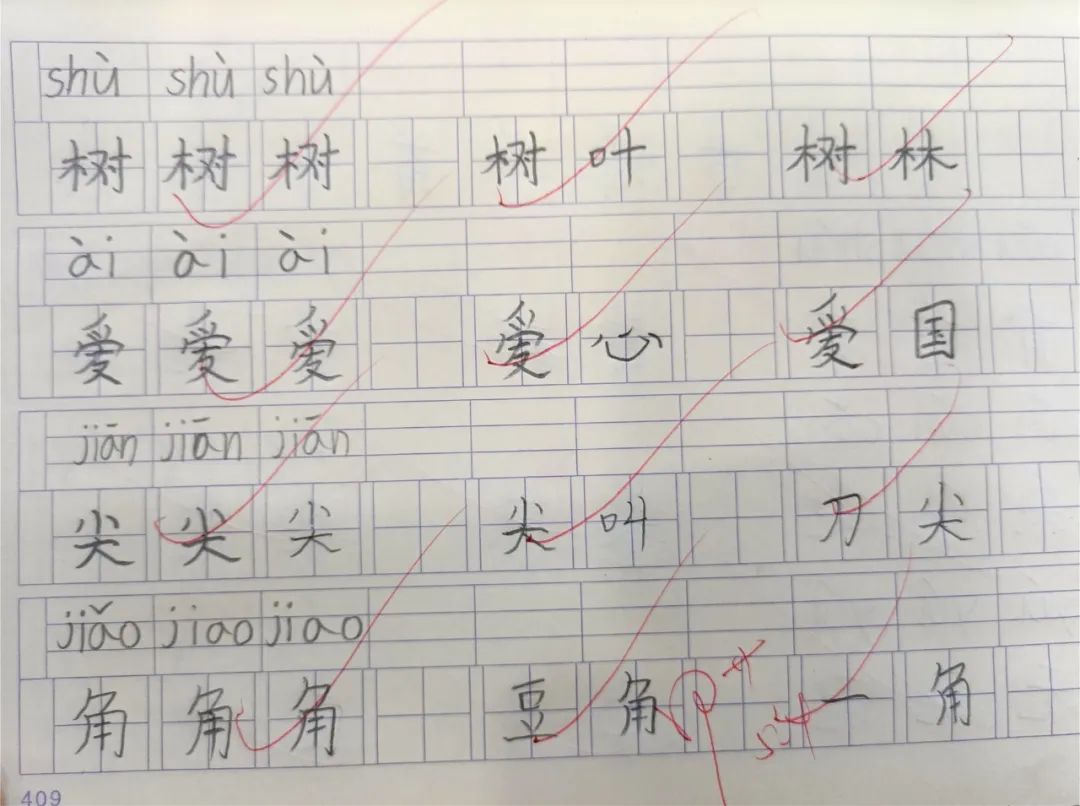 shù shù shù
树 树 树 树 叶 树 林
ài ài ài
爱 爱 爱 爱 心 爱 国
jiān jiān jiān
尖 尖 尖 尖 叫 刀 尖
jiǎo jiao jiao
角 角 角 豆 角 一 角
409